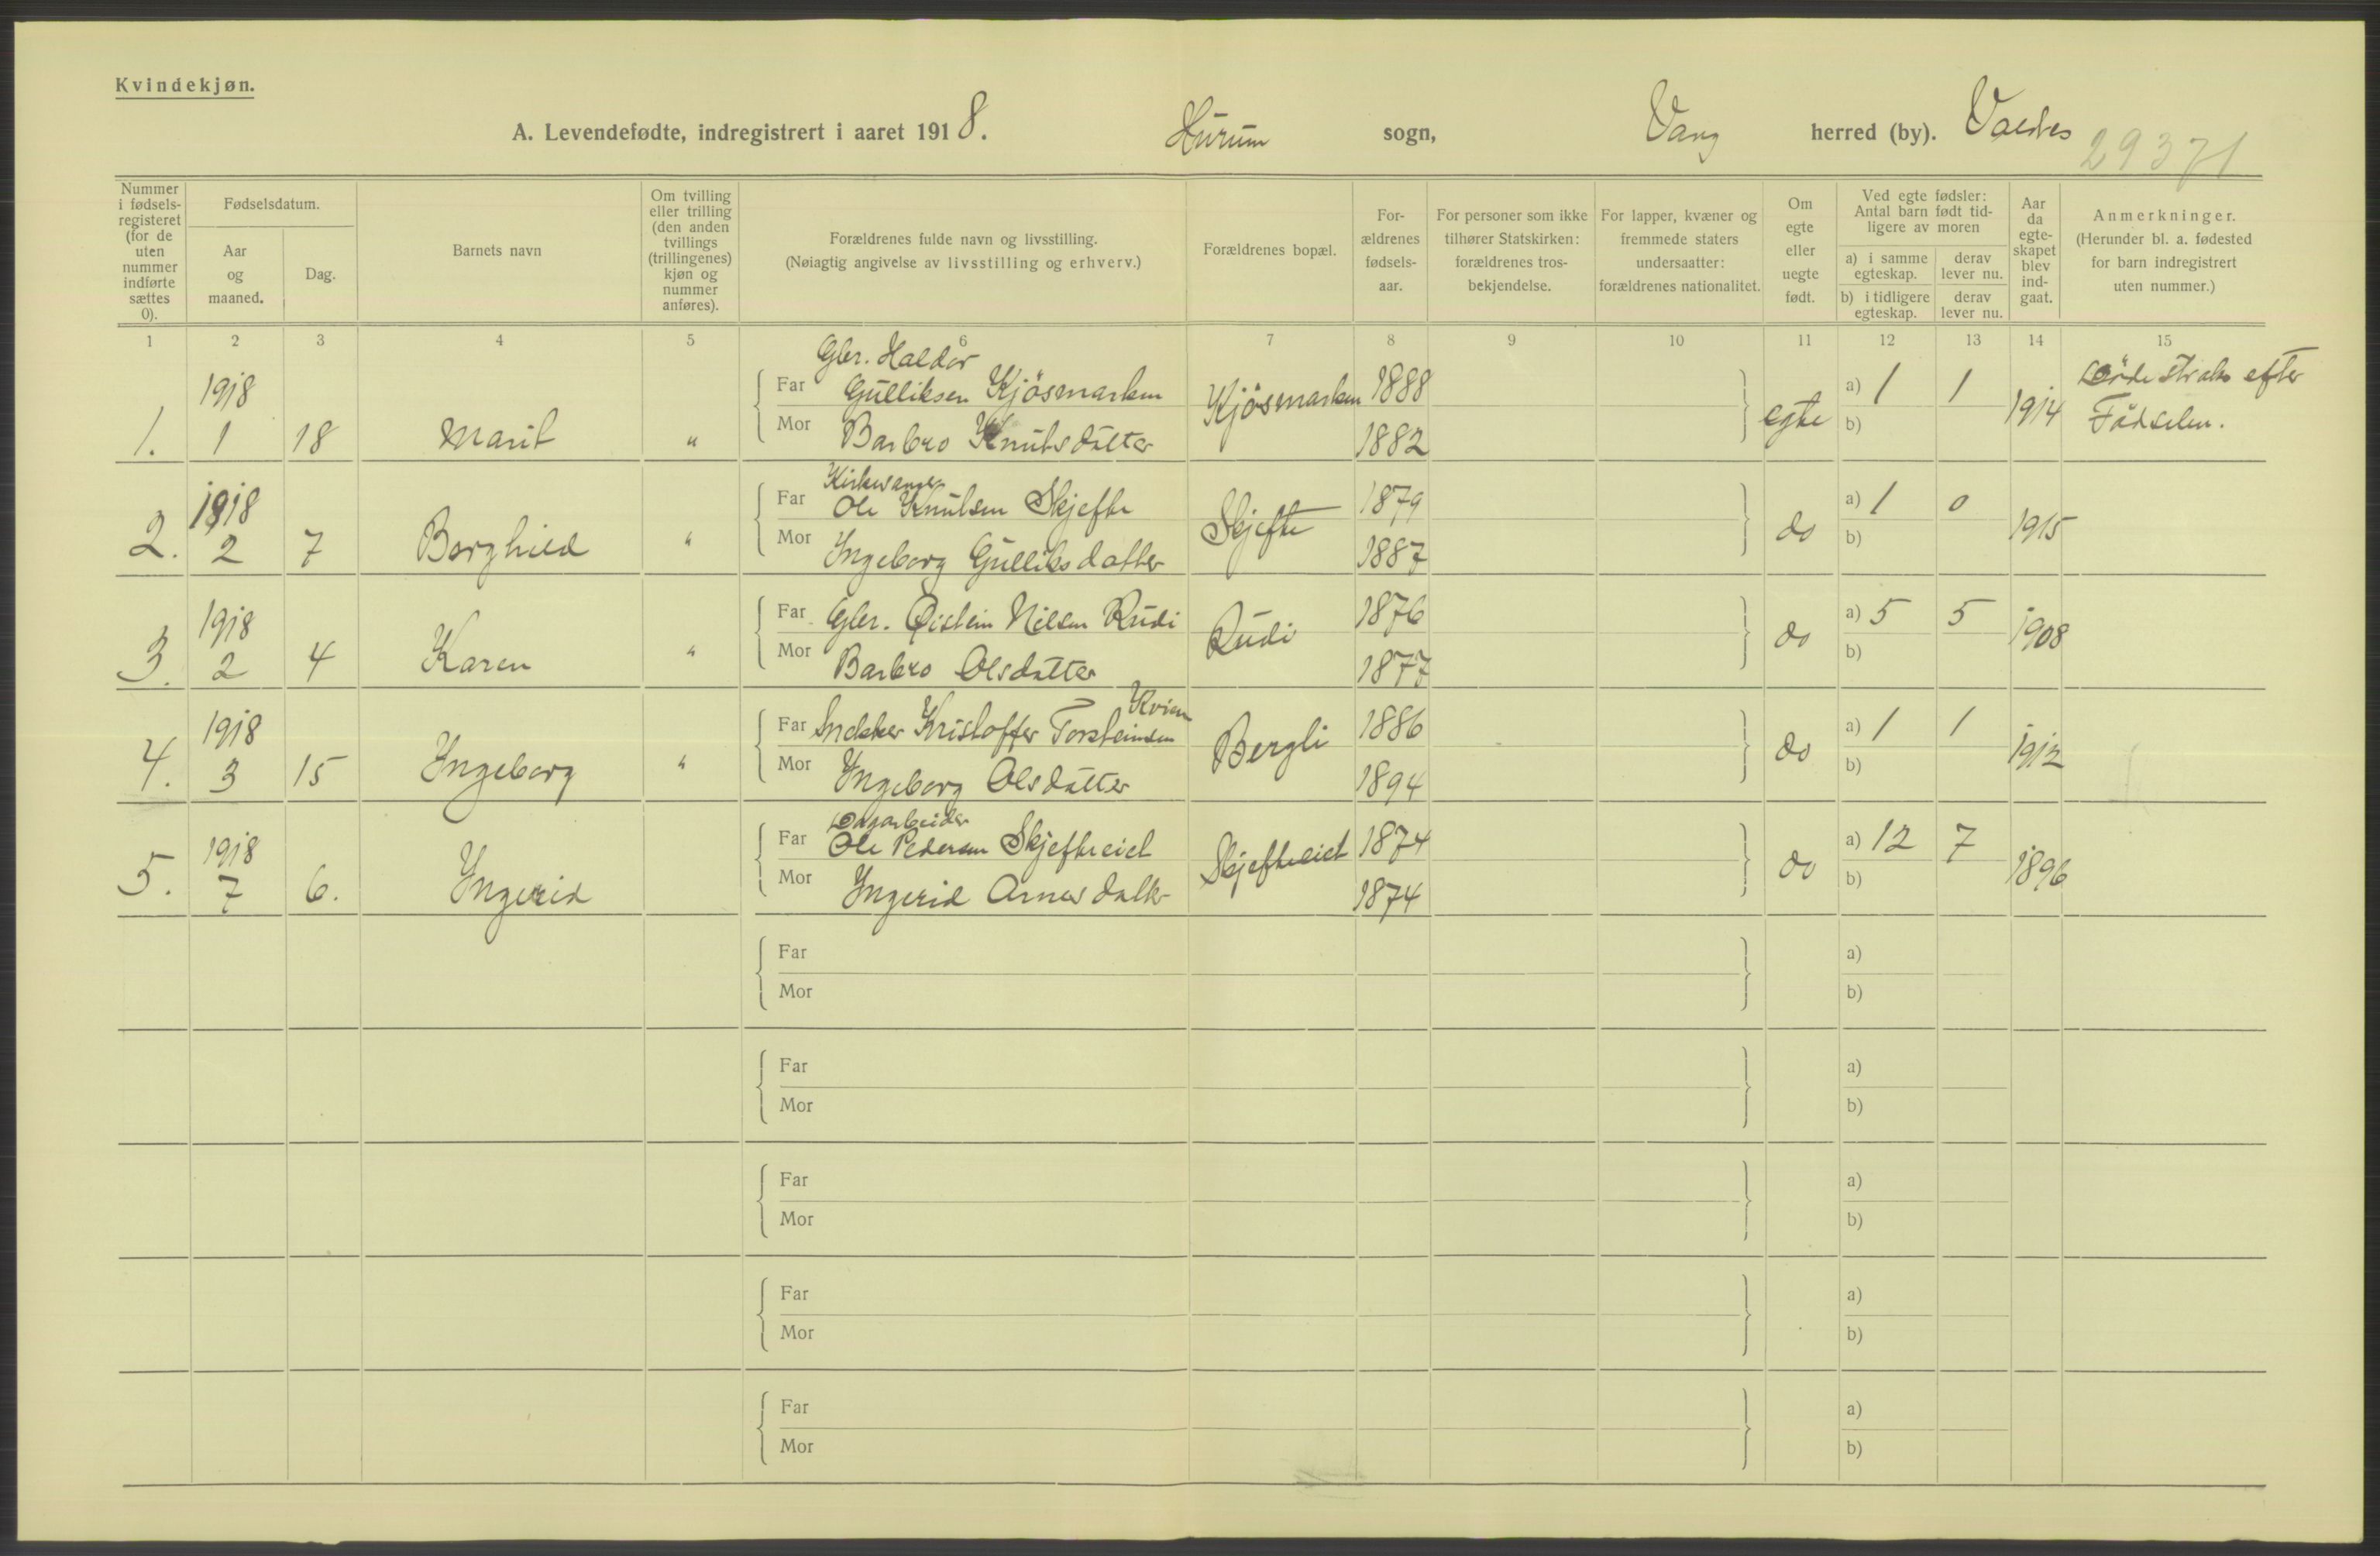 Kvindekjøn.
A. Levendefødte, indregistrert i aaret 1918. Hurum sogn, Vang herred (by). Valdres
29371
Nummer i fødselsregisteret (for de uten nummer indførte sættes 0).
Fødselsdatum.
Aar og maaned.
Dag.
Barnets navn
Om tvilling eller trilling (den anden tvillings (trillingenes) kjøn og nummer anføres).
Forældrenes fulde navn og livsstilling.
(Nøiagtig angivelse av livsstilling og erhverv.)
Forældrenes bopæl.
For-ældrenes fødsels-aar.
For personer som ikke tilhører Statskirken: forældrenes tros-bekjendelse.
For lapper, kvæner og fremmede staters undersaatter: forældrenes nationalitet.
Om egte eller uegte født.
Ved egte fødsler: Antal barn født tid-ligere av moren
a) i samme egteskap.
derav lever nu.
b) i tidligere egteskap.
derav lever nu.
Aar da egte-skapet blev ind-gaat.
Anmerkninger.
(Herunder bl. a. fødested for barn indregistrert uten nummer.)
1 2 3 4 5 6 7 8 9 10 11 12 13 14 15
Gbr. Haldor
1918 Far Gulliksen Kjösmarken Kjösmarken 1888 a) 1 1 Döde straks efter
1. 1 18 Marit " Mor Barbro Knutsdatter 1882 egte b) 1914 Födselen.
Kirkesanger
1918 Far Ole Knutsen Skjefte Skjefte 1879 a) 1 0
2. 2 7 Borghild " Mor Ingeborg Gulliksdatter 1887 do b) 1915
1918 Far Gbr. Öistein Nilsen Rudi Rudi 1876 a) 5 5
3. 2 4 Karen " Mor Barbro Olsdatter 1877 do b) 1908
Kvien
1918 Far Snekker Kristoffer Torsteinsen Bergli 1886 a) 1 1
4. 3 15 Ingeborg " Mor Ingeborg Olsdatter 1894 do b) 1912
Dagarbeider
1918 Far Ole Pedersen Skjefteeiet Skjefteeiet 1874 a) 12 7
5. 7 6. Ingerid Mor Ingerid Arnesdatter 1874 do b) 1896
Far a)
Mor b)
Far a)
Mor b)
Far a)
Mor b)
Far a)
Mor b)
Far a)
Mor b)